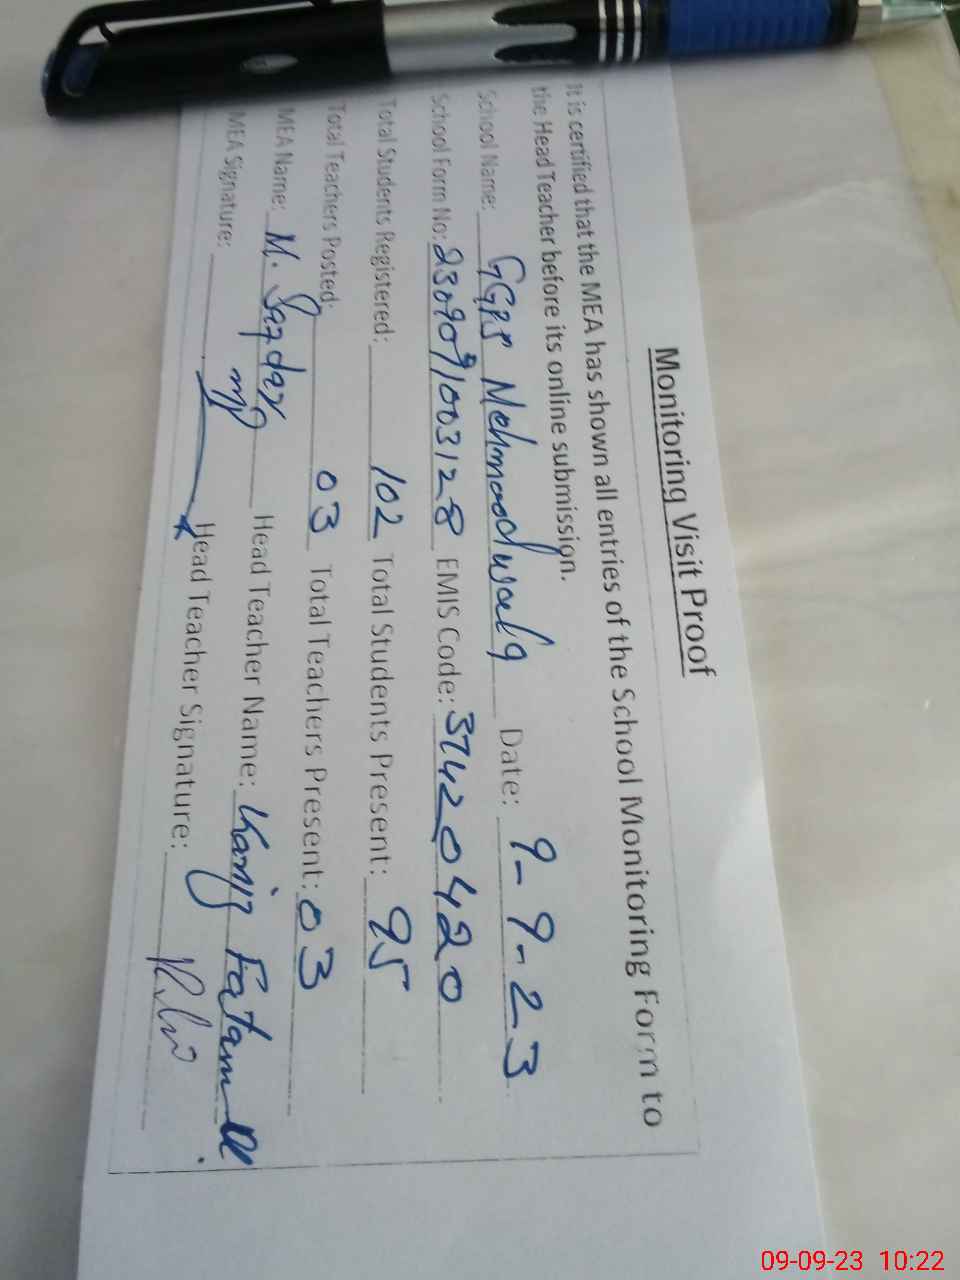 Monitoring Visit Proof
It is certified that the MEA has shown all entries of the School Monitoring Form to
the Head Teacher before its online submission.
School Name: GGPS Mehmoodwala Date: 9-9-23
School Form No: EMIS Code: 37420420
Total Students Registered: 102 Total Students Present: 95
Total Teachers Posted: 03 Total Teachers Present: 03
MEA Name: M. Head Teacher Name: Kaniz
MEA Signature: Head Teacher Signature:
09-09-23 10:22